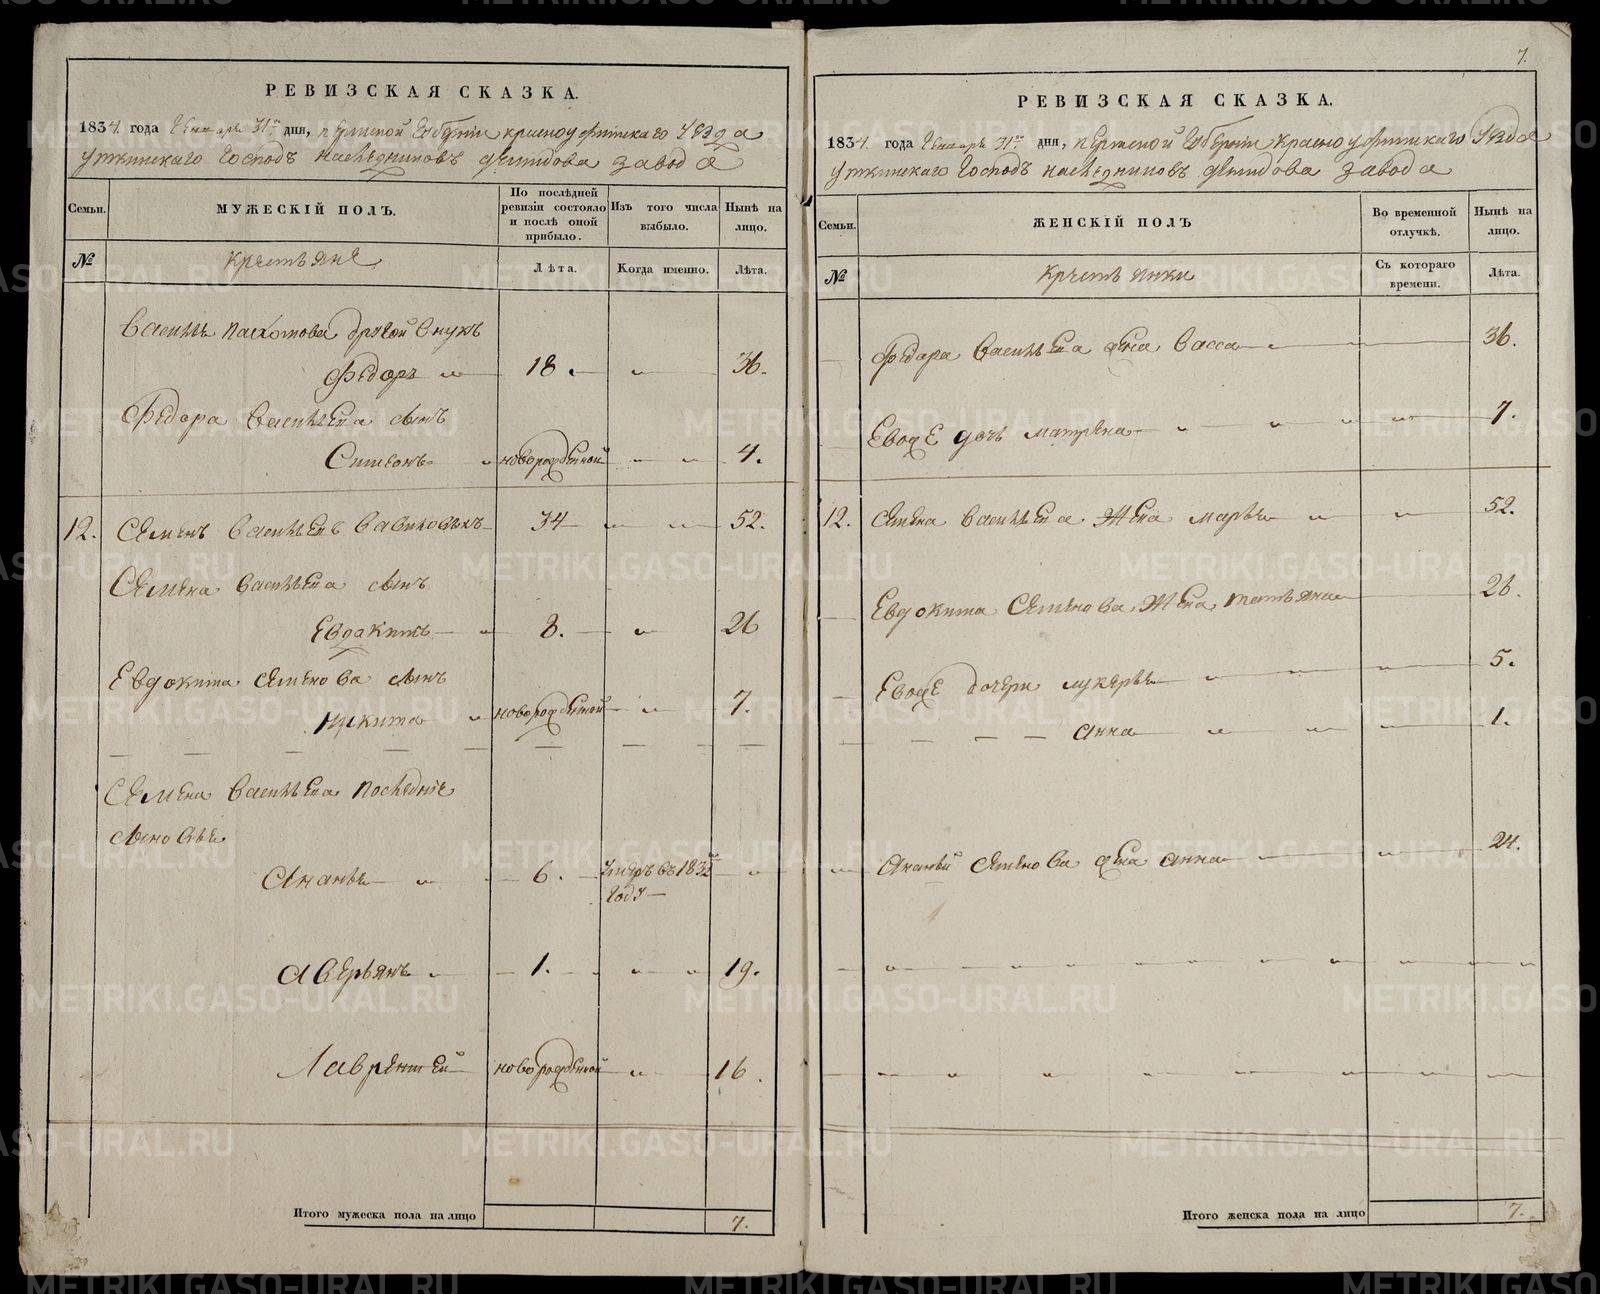 РЕВИЗСКАЯ СКАЗКА.
1834. года Генваря 31го дня, пермской губернiи красноуфимскаго уезда
уткинскаго господъ наследниковъ демидова завода
Семьи.
МУЖЕСКIЙ ПОЛЪ.
По послѣдней ревизiи состояло и послѣ оной прибыло.
Изъ того числа выбыло.
Нынѣ на лицо.
№
крестьяне
Лѣта.
Когда именно.
Лѣта.
василья пахомова другой внукъ
Федоръ 18. 36.
Федора васильева сынъ
Симеонъ новорожденной 4.
12. Семенъ васильевъ 34 52.
Семена васильева сынъ
Евдокимъ 8. 26
Евдокима семенова сынъ
никита новорожденной 7.
Семена васильева последнiе
сыновья
Ананья 6. умеръ въ 1832м
году
Аверьянъ 1. 19.
Лаврентей новорожденной 16.
Итого мужеска пола на лицо 7.
7.
РЕВИЗСКАЯ СКАЗКА.
1834. года Генваря 31го дня, пермской губернiи красноуфимскаго уезда
уткинскаго господъ наследниковъ демидова завода
Семьи.
ЖЕНСКIЙ ПОЛЪ
Во временной отлучкѣ.
Нынѣ на лицо.
№
крестьянки
Съ котораго времени.
Лѣта.
федора васильева жена васса 36.
Евоже дочь матрена 7.
12. семена васильева жена марья 52.
Евдокима семенова жена татьяна 26.
Евоже дочери лукерья 5.
анна 1.
Ананьи семенова жена анна 24.
Итого женска пола на лицо 7.
METRIKI.GASO-URAL.RU